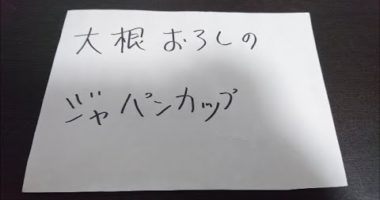 大根おろしの
ジャパンカップ